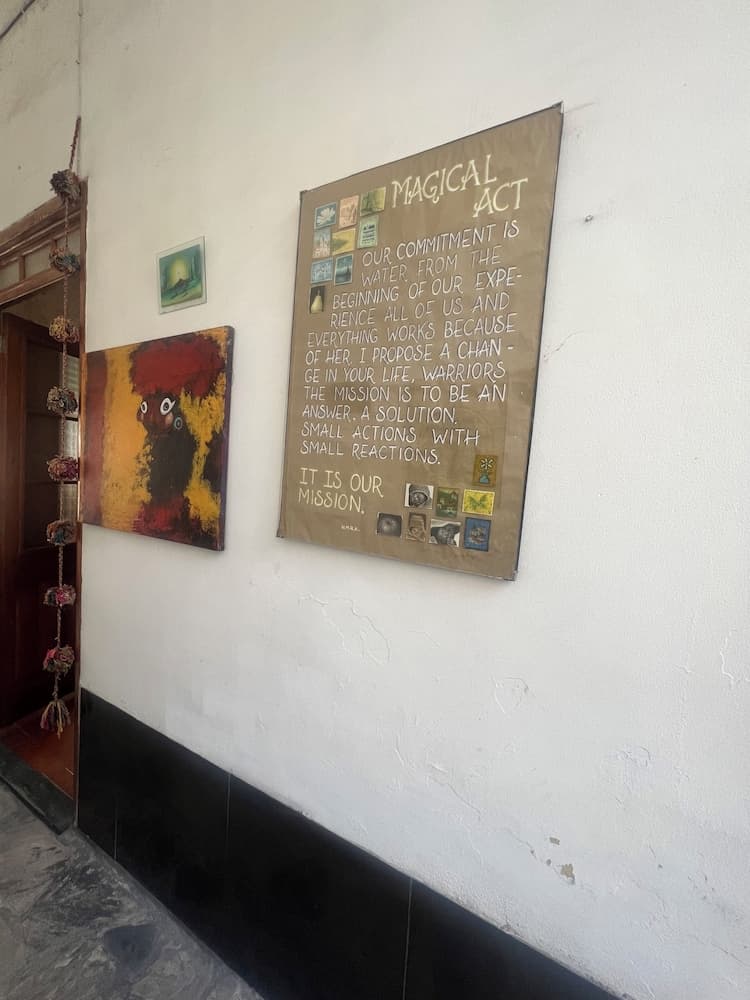 MAGICAL
ACT
OUR COMMITMENT IS
WATER FROM THE
BEGINNING OF OUR EXPE-
RIENCE ALL OF US AND
EVERYTHING WORKS BECAUSE
OF HER. I PROPOSE A CHAN-
GE IN YOUR LIFE, WARRIORS
THE MISSION IS TO BE AN
ANSWER. A SOLUTION.
SMALL ACTIONS WITH
SMALL REACTIONS.
IT IS OUR
MISSION.